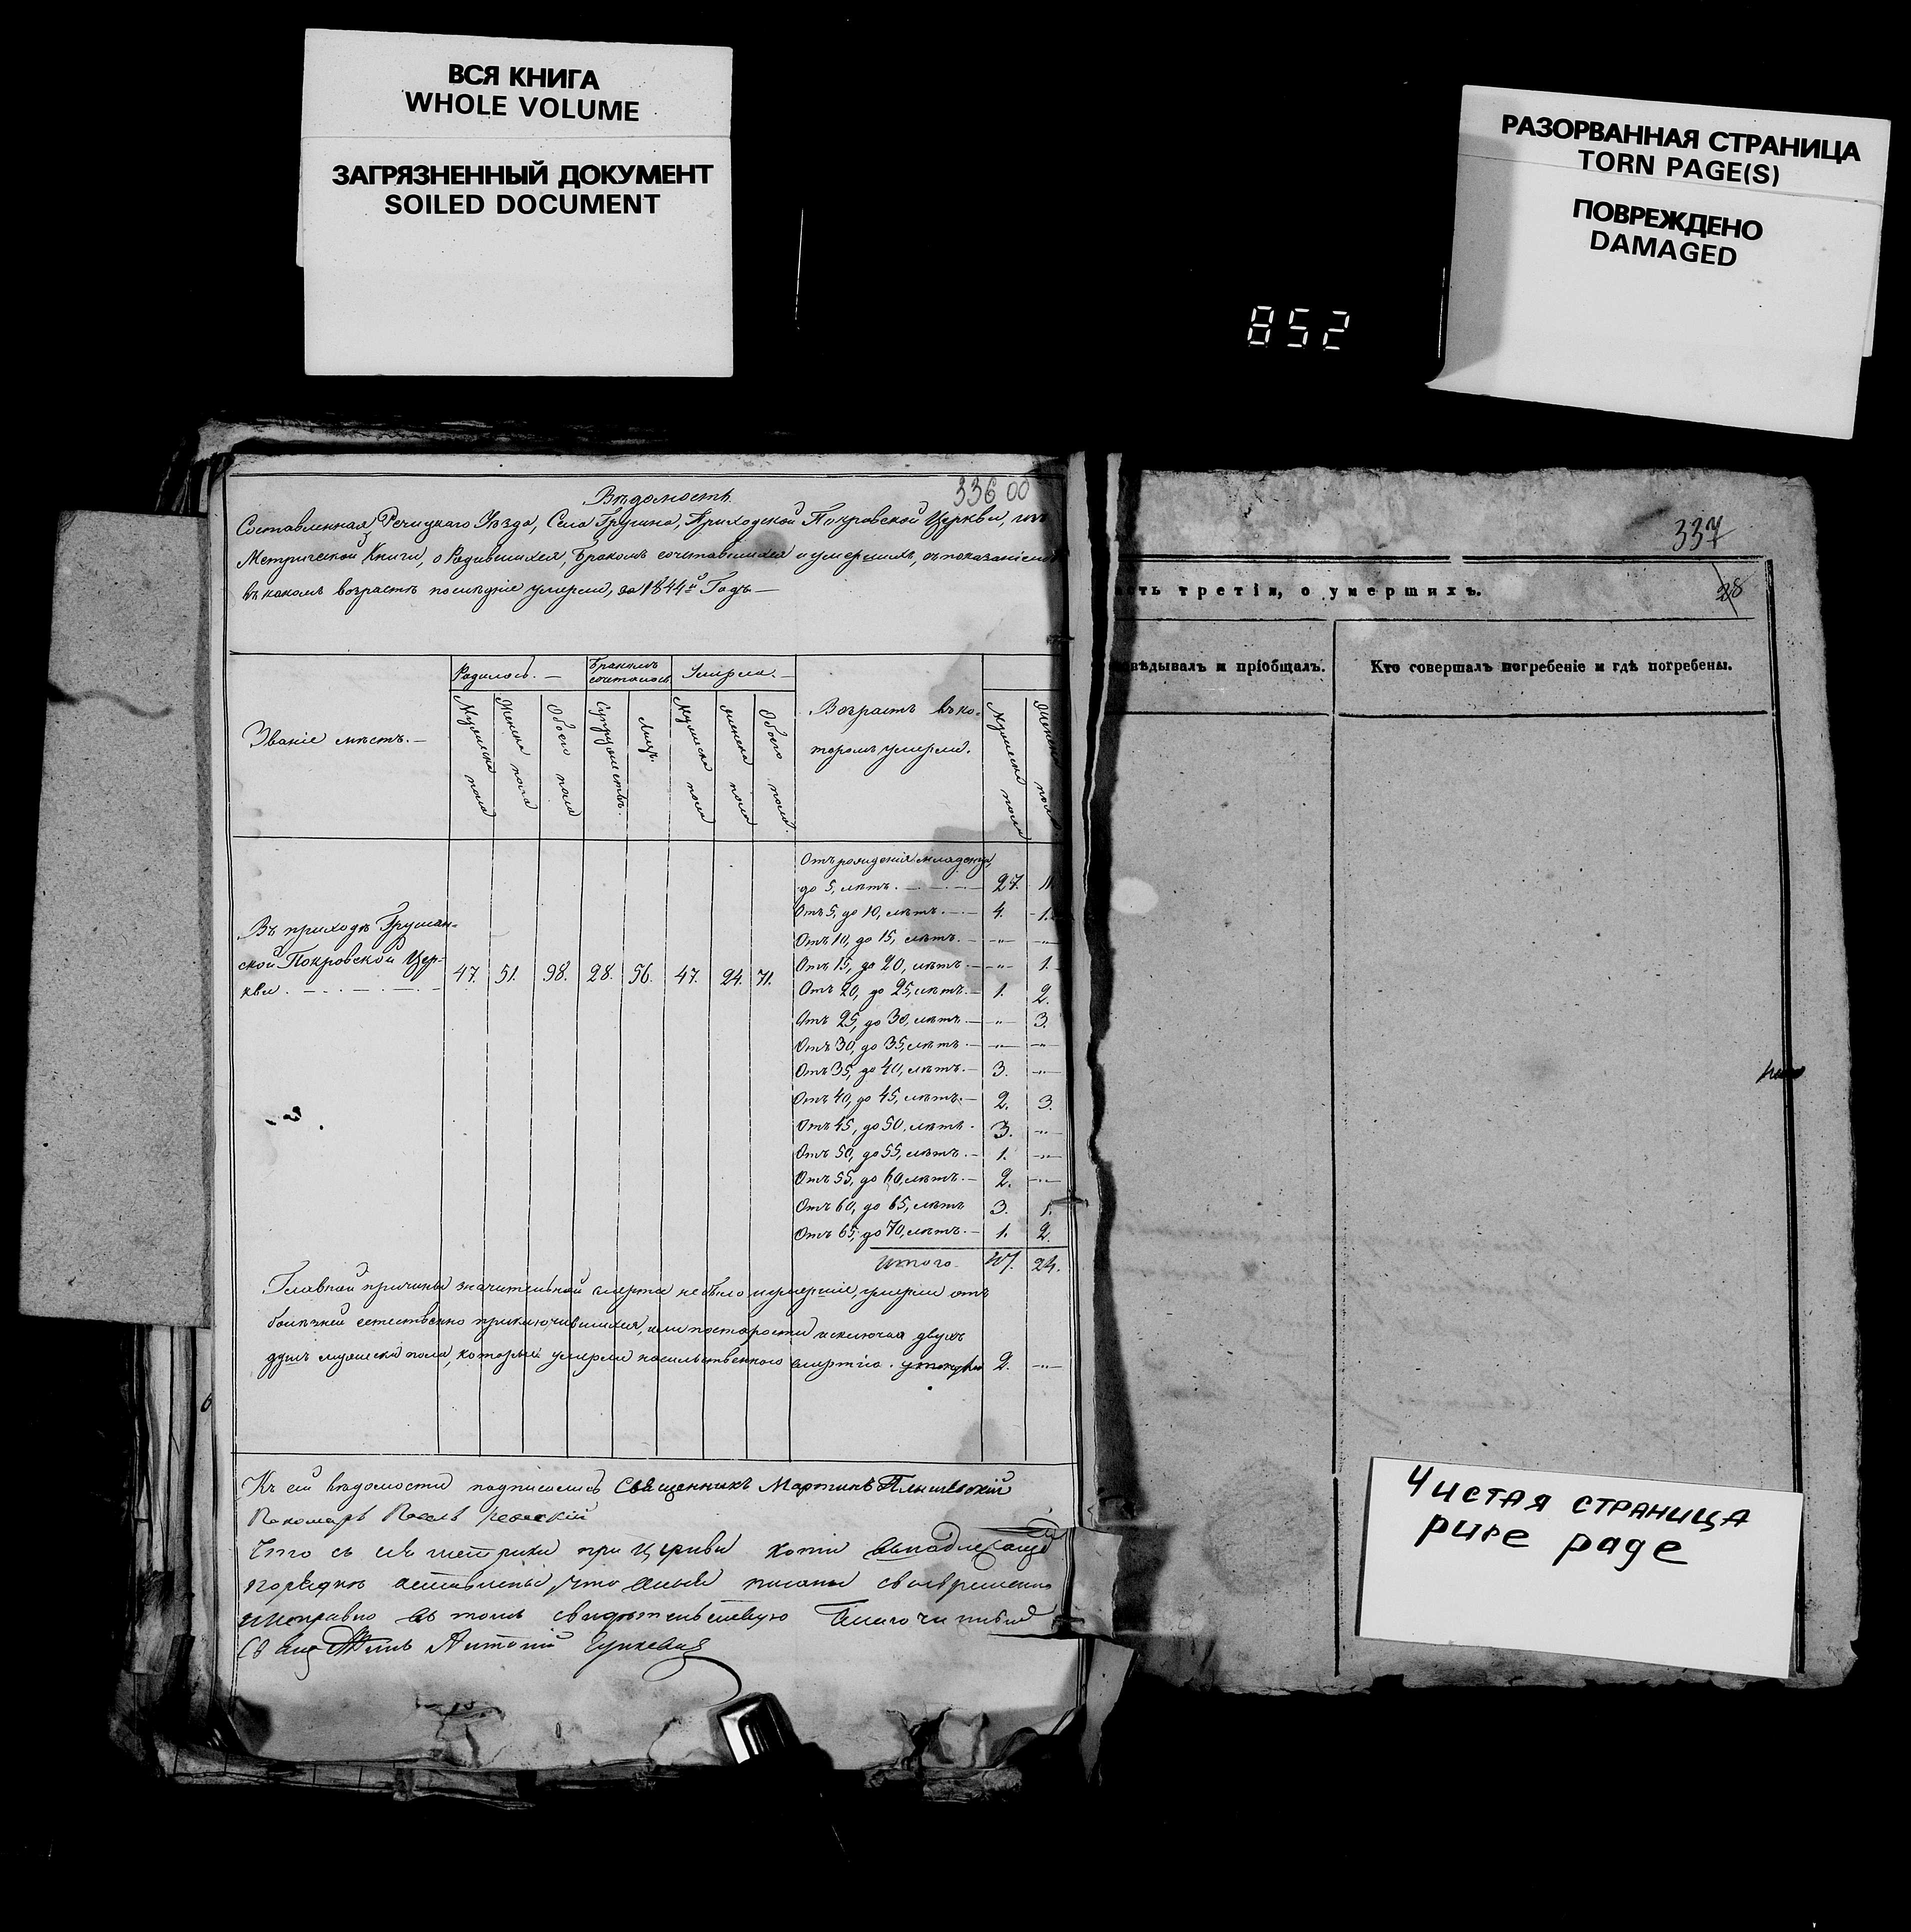 ВСЯ КНИГА
WHOLE VOLUME
ЗАГРЯЗНЕННЫЙ ДОКУМЕНТ
SOILED DOCUMENT
РАЗОРВАННАЯ СТРАНИЦА
TORN PAGE(S)
ПОВРЕЖДЕНО
DAMAGED
852
336 00
Вѣдомость
Составленная Речицкаго Уѣзда, Села Грушна, Приходской Покровской Церкви, изъ
Метрической Книги, о Родившихся, Бракомъ сочетавшихся и умершихъ, съ показаніемъ
въ какомъ возрастѣ послѣдніе умерли, за 1844й Годъ.—
Званіе мѣстъ.—
Родилось.—
Бракомъ сочеталось
Умерло.—
Возрастъ въ ко-
торомъ умерли.
Мужеска пола
Женска пола
Обоего пола
Супружествъ.
Лицъ.
Мужеска пола
Женска пола
Обоего пола.
Мужеска пола
Женска пола
Въ приходѣ Грушан-
ской Покровской Цер-
кви.
47. 51. 98. 28. 56. 47. 24. 71.
Отъ рожденія младенца,
до 5, лѣтъ.— 27. 11.
Отъ 5, до 10, лѣтъ.— 4. 1.
Отъ 10, до 15, лѣтъ.— -"- -"-
Отъ 15, до 20, лѣтъ.— -"- 1.
Отъ 20, до 25, лѣтъ.— 1. 2.
Отъ 25, до 30, лѣтъ.— -"- 3.
Отъ 30, до 35, лѣтъ.— -"- -"-
Отъ 35, до 40, лѣтъ.— 3. -"-
Отъ 40, до 45, лѣтъ.— 2. 3.
Отъ 45, до 50, лѣтъ. 3. -"-
Отъ 50, до 55, лѣтъ.— 1. -"-
Отъ 55, до 60, лѣтъ.— 2. -"-
Отъ 60, до 65, лѣтъ 3. 1.
Отъ 65, до 70, лѣтъ.— 1. 2.
Итого. 47. 24.
Главной причины значительной смерти не было и умершіе, умерли отъ
болѣзней естественно приключившихся, или по старости исключая двухъ
душъ мужеска пола, которые умерли насильственною смертію. 2. -"-
Къ сей вѣдомости подписались Священникъ Мартинъ
Пономарь
Что сіи метрики при Церкви
порядкѣ что писаны своевременно
исправно въ томъ свидѣтельствую Благочинный
Антоній
337
28
сть третія, о умершихъ.
вѣдывалъ и пріобщалъ.
Кто совершалъ погребеніе и гдѣ погребены.
ЧИСТАЯ СТРАНИЦА
pure page